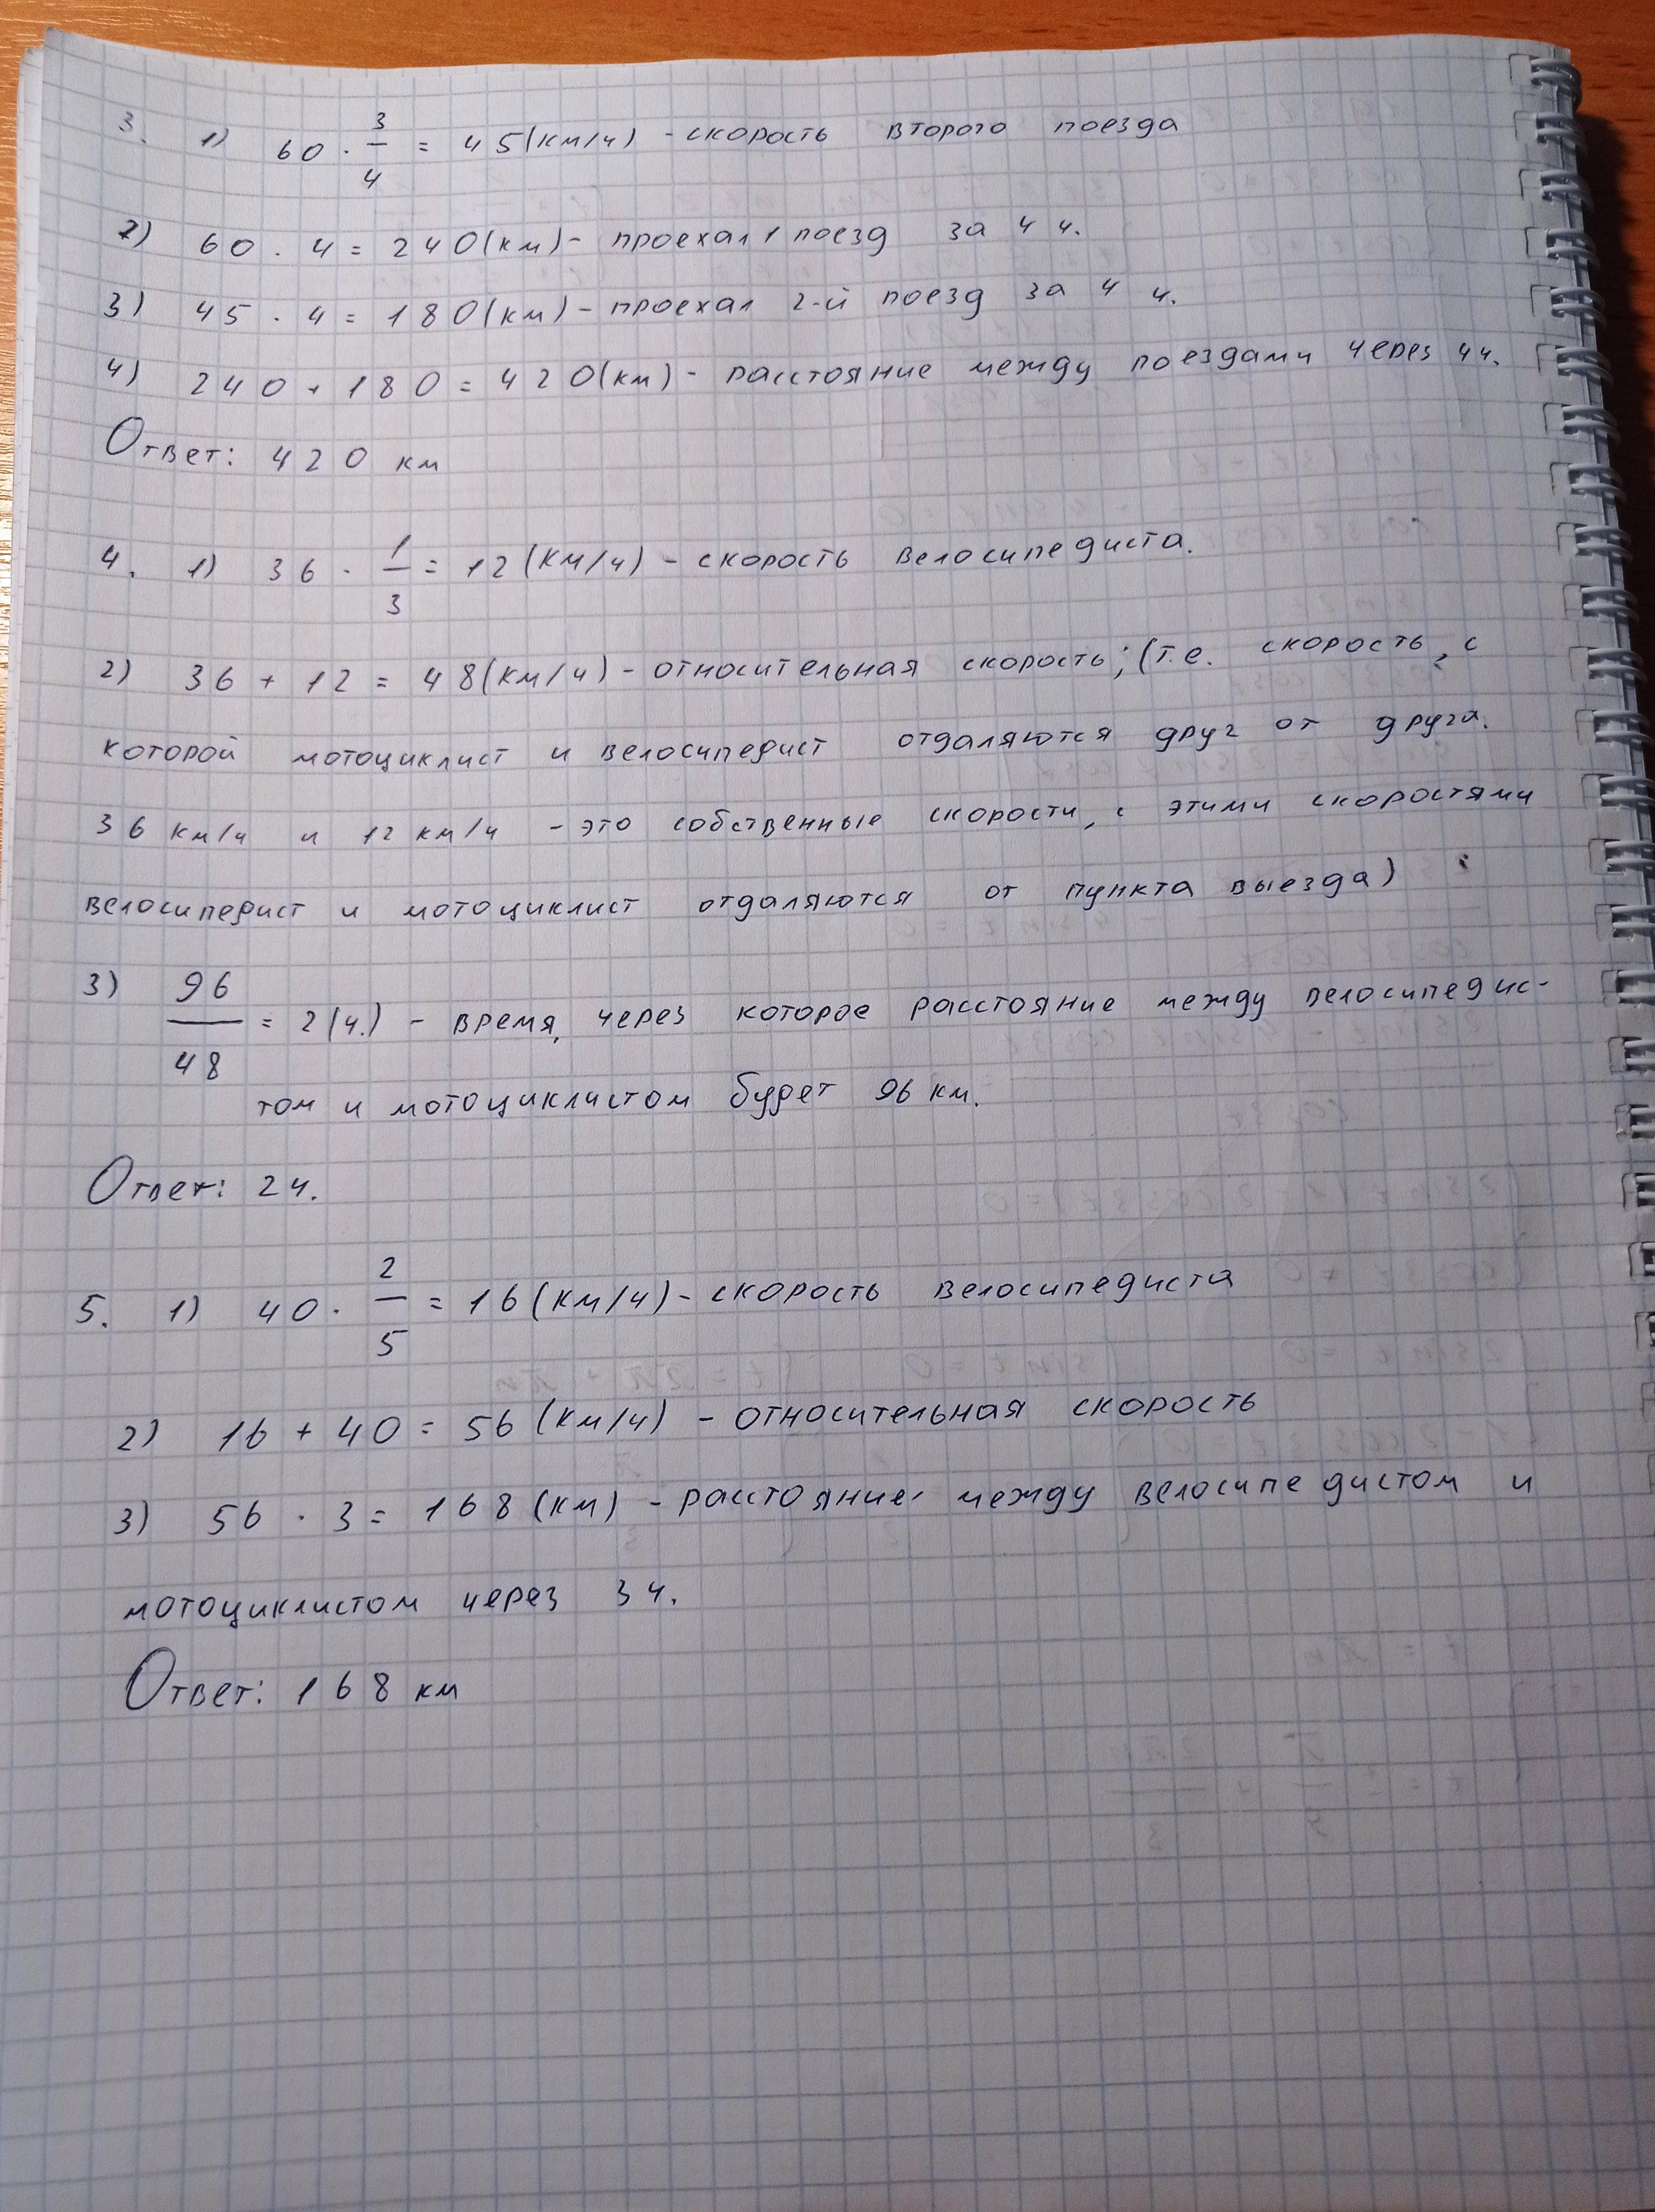 3. 1) 60 · 3/4 = 45(км/ч) - скорость второго поезда
2) 60 · 4 = 240(км) - проехал 1 поезд за 4 ч.
3) 45 · 4 = 180(км) - проехал 2-й поезд за 4 ч.
4) 240 + 180 = 420(км) - расстояние между поездами через 4ч.
Ответ: 420 км
4. 1) 36 · 1/3 = 12(км/ч) - скорость велосипедиста.
2) 36 + 12 = 48(км/ч) - относительная скорость; (т.е. скорость, с
которой мотоциклист и велосипедист отдаляются друг от друга.
36 км/ч и 12 км/ч - это собственные скорости, с этими скоростями
велосипедист и мотоциклист отдаляются от пункта выезда)
3) 96/48 = 2(ч.) - время, через которое расстояние между велосипедис-
том и мотоциклистом будет 96 км.
Ответ: 2ч.
5. 1) 40 · 2/5 = 16(км/ч) - скорость велосипедиста
2) 16 + 40 = 56(км/ч) - относительная скорость
3) 56 · 3 = 168(км) - расстояние между велосипедистом и
мотоциклистом через 3ч.
Ответ: 168 км